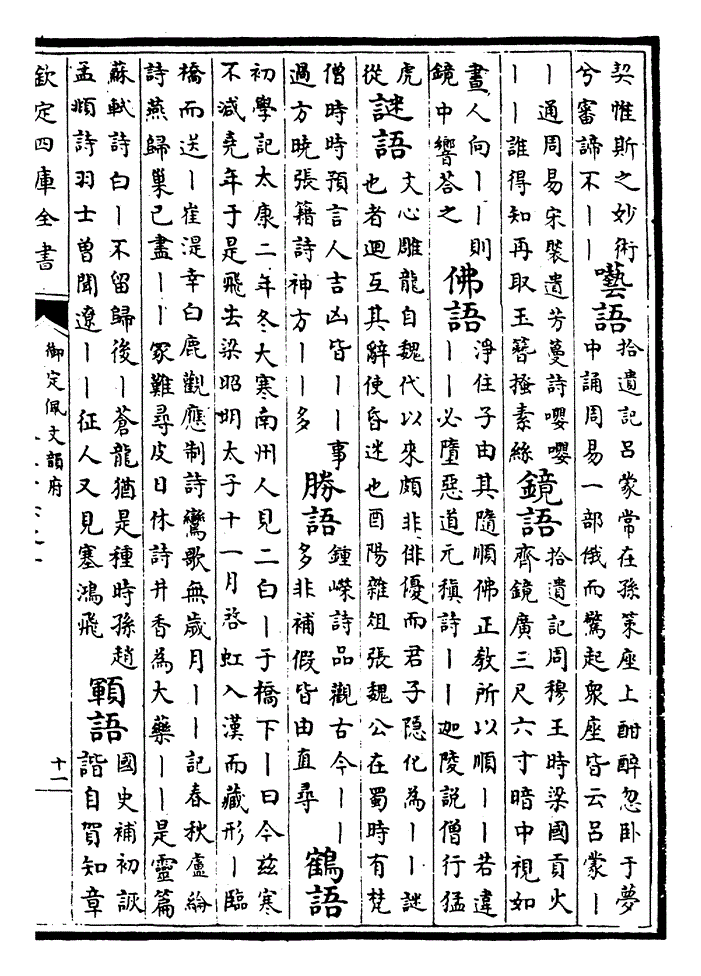 契惟斯之妙術
兮審諦不丨丨
囈語
拾遺記呂蒙常在孫策座上酣醉忽卧于夢
中誦周易一部俄而驚起衆座皆云呂蒙丨
丨通周易宋褧遺芳蔓詩嚶嚶
丨丨誰得知再取玉簪搔素絲
鏡語
拾遺記周穆王時梁國貢火
齊鏡廣三尺六寸暗中視如
晝人向丨丨則
鏡中響荅之
佛語
淨住子由其隨順佛正教所以順丨丨若違
丨丨必墮惡道元稹詩丨丨迦陵説僧行猛
虎
從
謎語
文心雕龍自魏代以來頗非俳優而君子隱化為丨丨謎
也者迴互其辭使昏迷也酉陽雜俎張魏公在蜀時有梵
僧時時預言人吉凶皆丨丨事
過方曉張籍詩神方丨丨多
勝語
鍾嶸詩品觀古今丨丨
多非補假皆由直尋
鶴語
初學記太康二年冬大寒南州人見二白丨于橋下丨曰今兹寒
不減堯年于是飛去梁昭明太子十一月啓虹入漢而藏形丨臨
橋而送丨崔湜幸白鹿觀應制詩鸞歌無歲月丨丨記春秋盧綸
詩燕歸巢已盡丨丨冢難尋皮日休詩井香為大藥丨丨是靈篇
蘇軾詩白丨不留歸後丨蒼龍猶是種時孫趙
孟頫詩羽士曾聞遼丨丨征人又見塞鴻飛
顐語
國史補初詼
諧自賀知章
欽定四庫全書
御定佩文韻府
十一